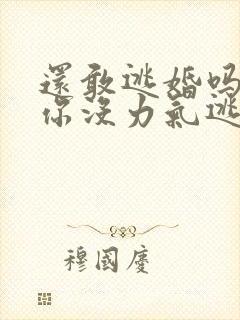 還敢逃婚吗
你沒力氣逃
穆國慶